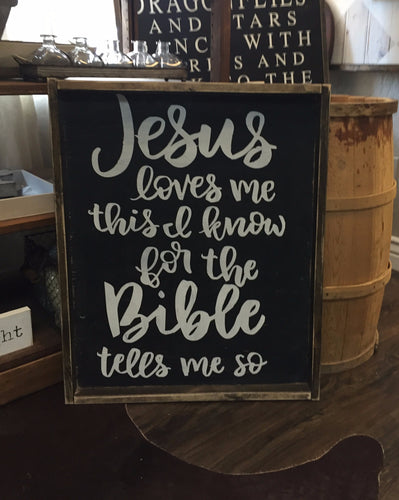 DRAGONFLIES
AND STARS
WITH
S AND
THE
Jesus
loves me
this I know
for the
Bible
tells me so
ht